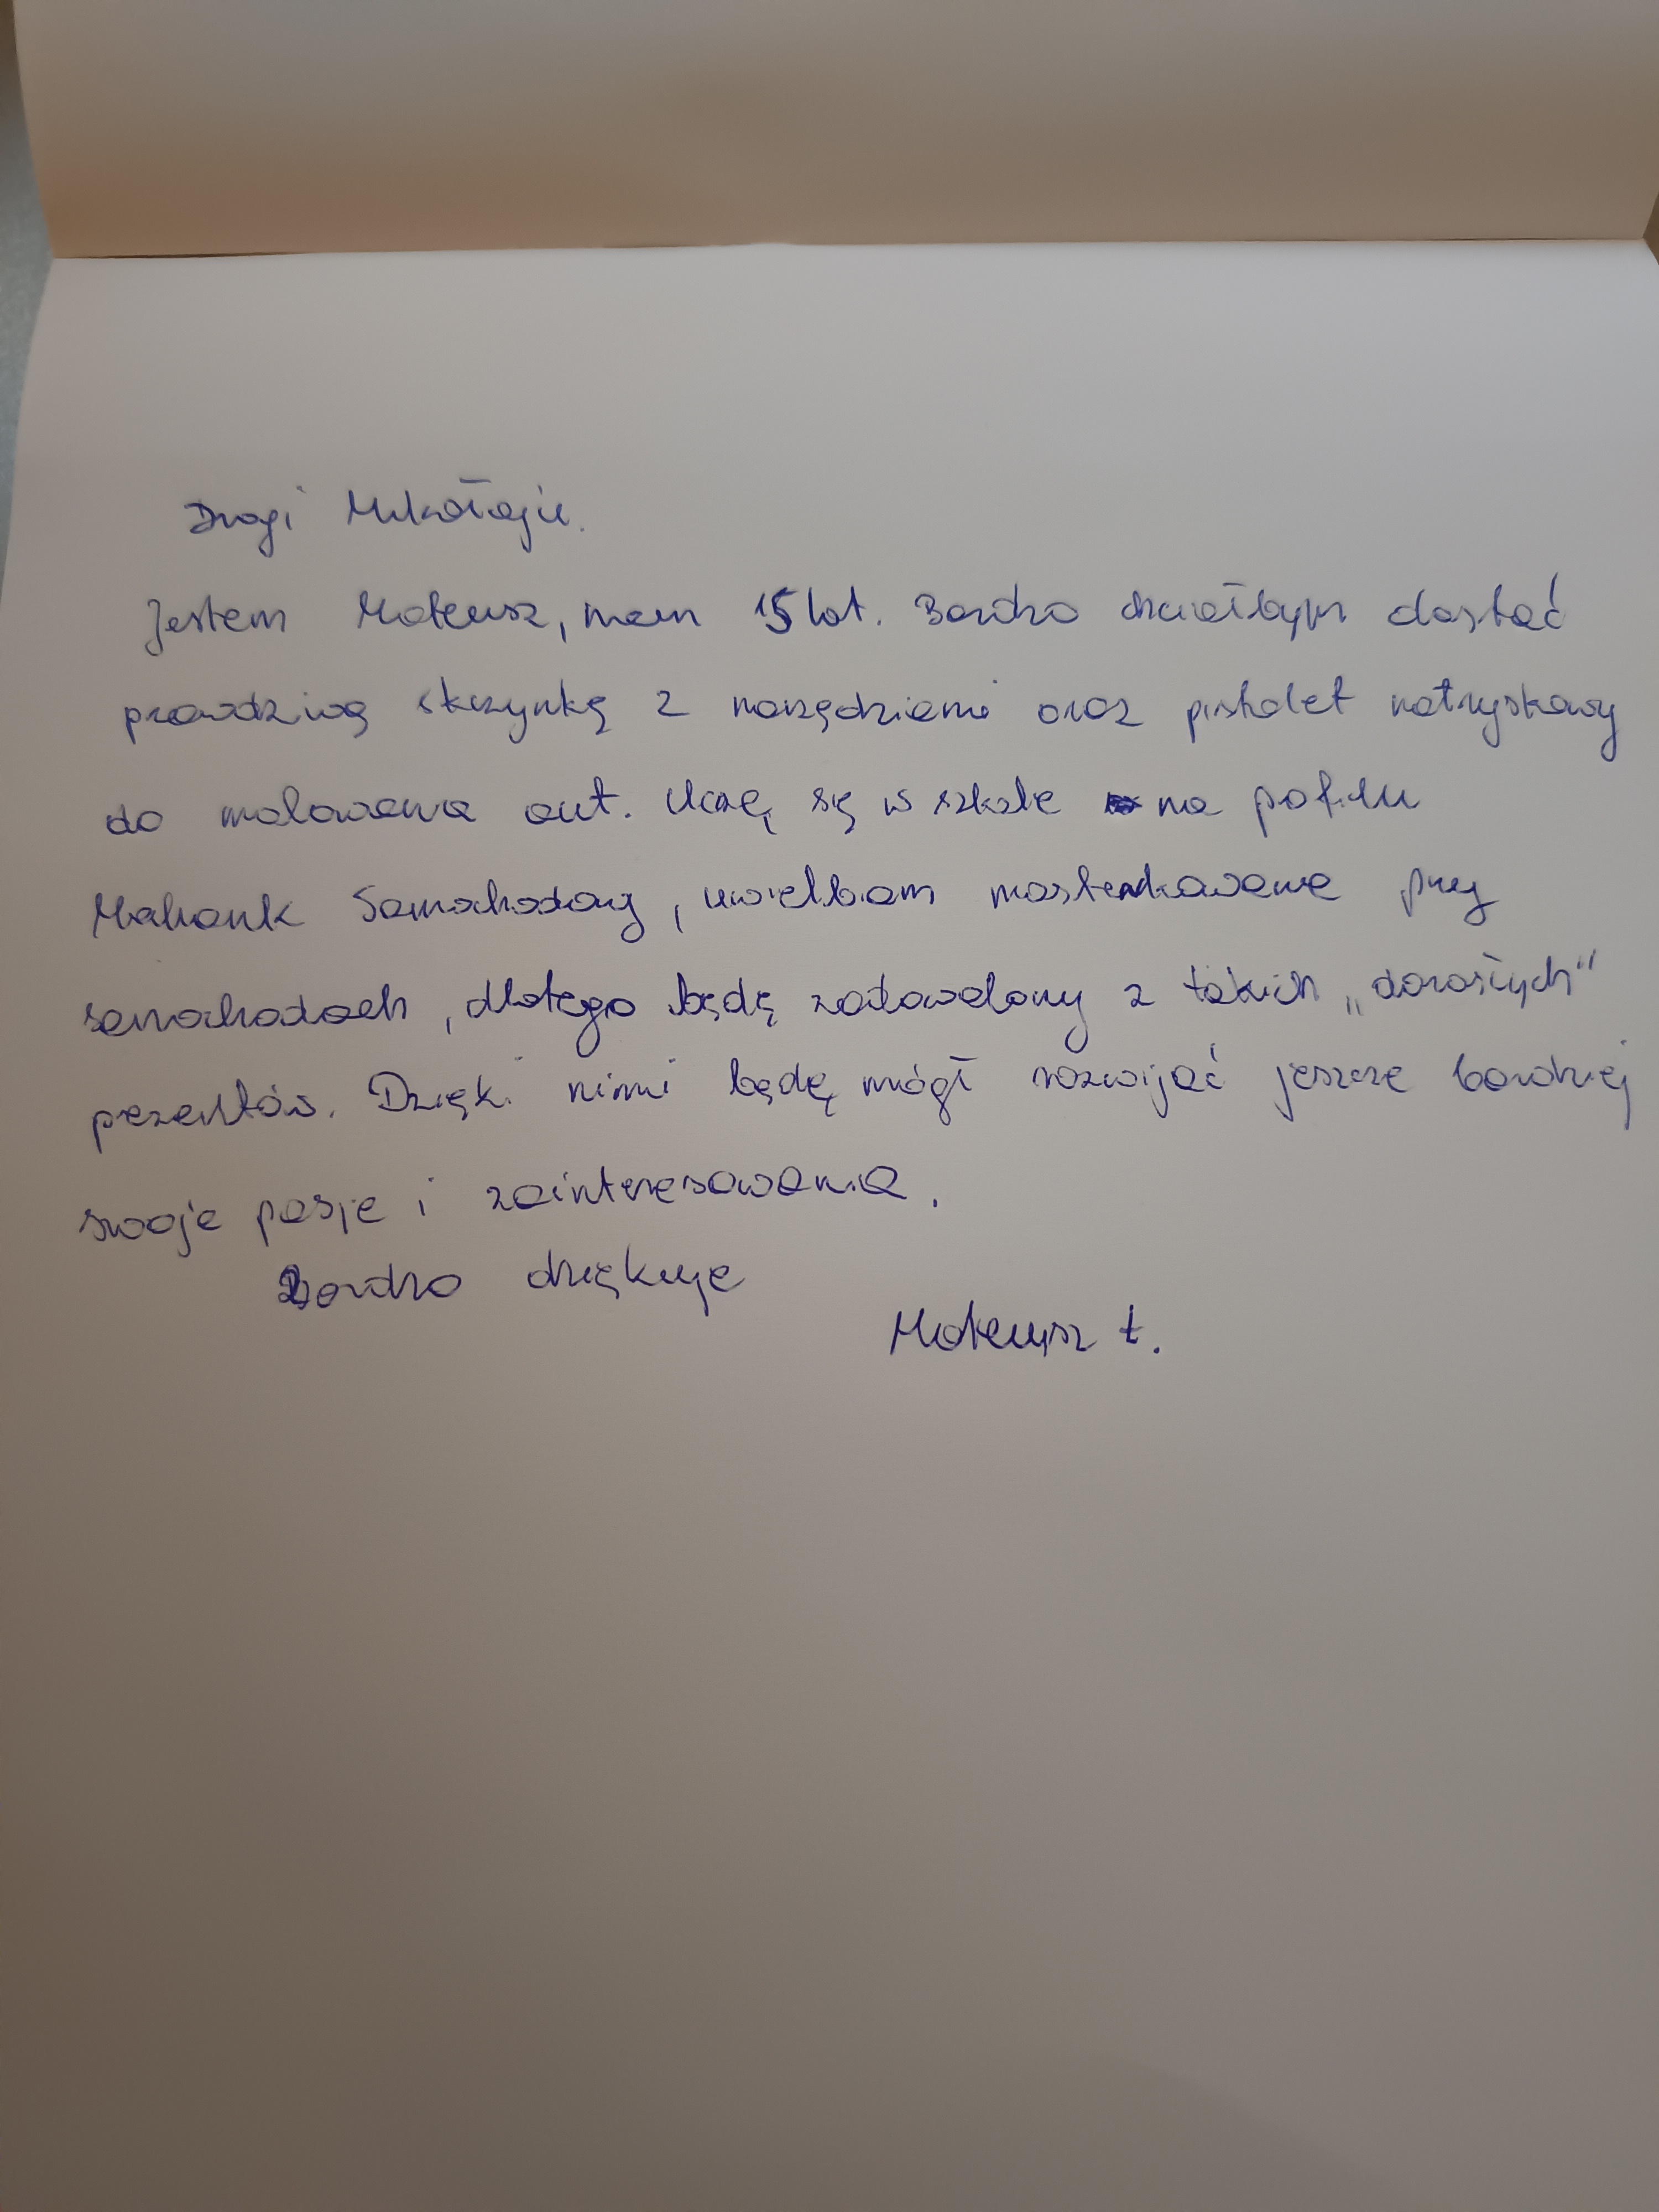 Drogi Mikołaju.
Jestem Mateusz, mam 15 lat. Bardzo chciałbym dostać
prawdziwą skrzynkę z narzędziami oraz pistolet natryskowy
do malowania aut. Uczę się w szkole na pofilu
Mechanik Samochodowy, uwielbiam masterkowanie przy
samochodach, dlatego będę zadowolony z takich „dorosłych"
prezentów. Dzięki nimi będę mógł rozwijać jeszcze bardziej
swoje pasje i zainteresowania.
Bardzo dziękuję
Mateusz Ł.